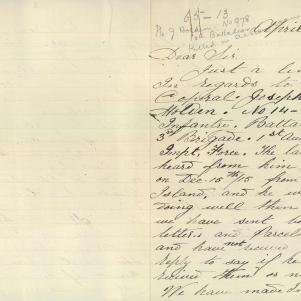 55-13
No 978
Battalion
Killed in
April
Dear Sir.
Just a li
In regards to
Copral. Joseph
Holden. No 14-
Infantry. Battal
3rd Brigade. 1st Au
Impt, Force. The la
heard from him
on Dec-15th/15 from
Island, and he w
doing well then
we have sent bo
letters and parcel
and have not received
reply to say if he
recived them or no
We have made